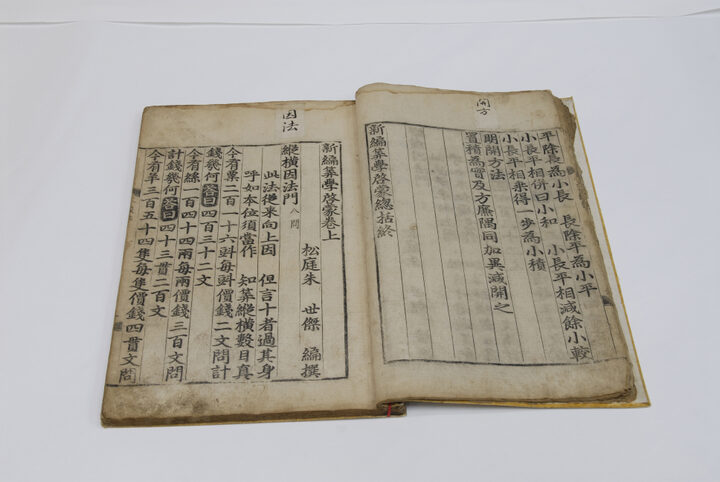 開方
平除長為小長　長除平為小平
小長平相併曰小和　小長平相減餘小較
小長平相乘得一步為小積
明開方法
置積為實及方廉隅同加異減開之
新編筭學啓蒙總括終
因法
新編筭學啓蒙卷上
松庭朱　世傑　編撰
縱橫因法門 八問
此法從來向上因　但言十者過其身
呼如本位須當作　知筭縱橫數目真
今有粟二百一十六斛每斛價錢二文問計
錢幾何答曰四百三十二文
今有絲一百四十四兩每兩價錢三百文問
計錢幾何答曰四十三貫二百文
今有羊三百五十四隻每隻價錢四貫文問